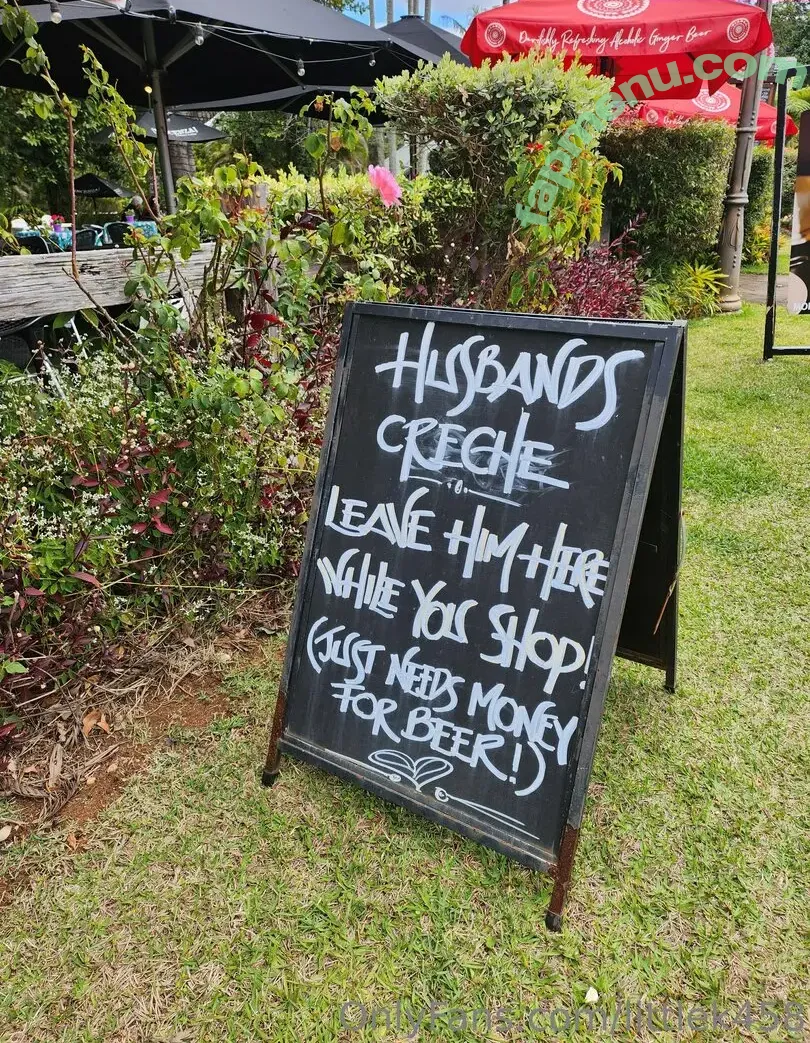 Dar#shly Refreshing Alcoholic Ginger Beer
fapmenu.com
HUSBANDS
CRECHE
LEAVE HIM HERE
WHILE YOU SHOP!
(JUST NEEDS MONEY
FOR BEER!)
OnlyFans.com/littlek458